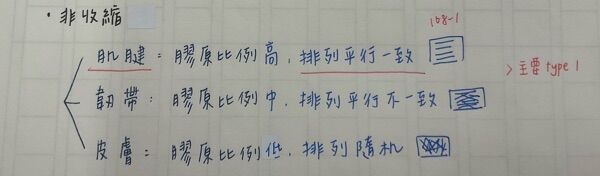 ・非收縮
108-1
肌腱：膠原比例高，排列平行一致
>主要type 1
韌帶：膠原比例中，排列平行不一致
皮膚：膠原比例低，排列隨机